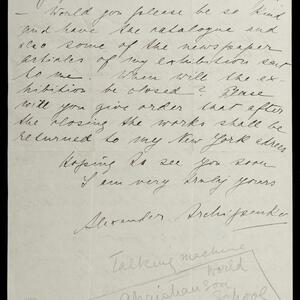 - Would you please be so kind
and have the catalogue and
also some of the newspaper
articles of my exhibition sent
to me. When will the ex-
hibition be closed? Please
will you give order that after
the closing the works shall be
returned to my New York adress
Hoping to see you soon
I am very truly yours
Alexander Archipenko
Talking machine
World
School